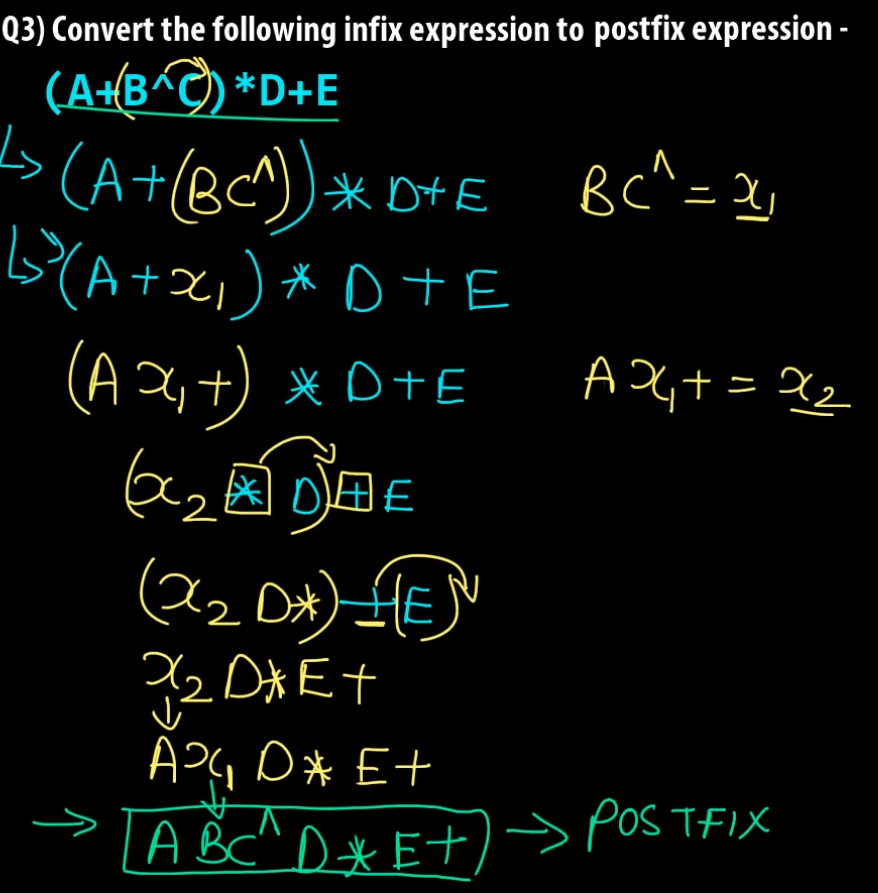 Q3) Convert the following infix expression to postfix expression -
(A+(B^C))*D+E
(A+(BC^))*D+E BC^ = x₁
(A+x₁)*D+E
(Ax₁+)*D+E Ax₁+ = x₂
(x₂*D)+E
(x₂D*)+(E)
x₂D*E+
Ax₁D*E+
ABC^D*E+ → POSTFIX